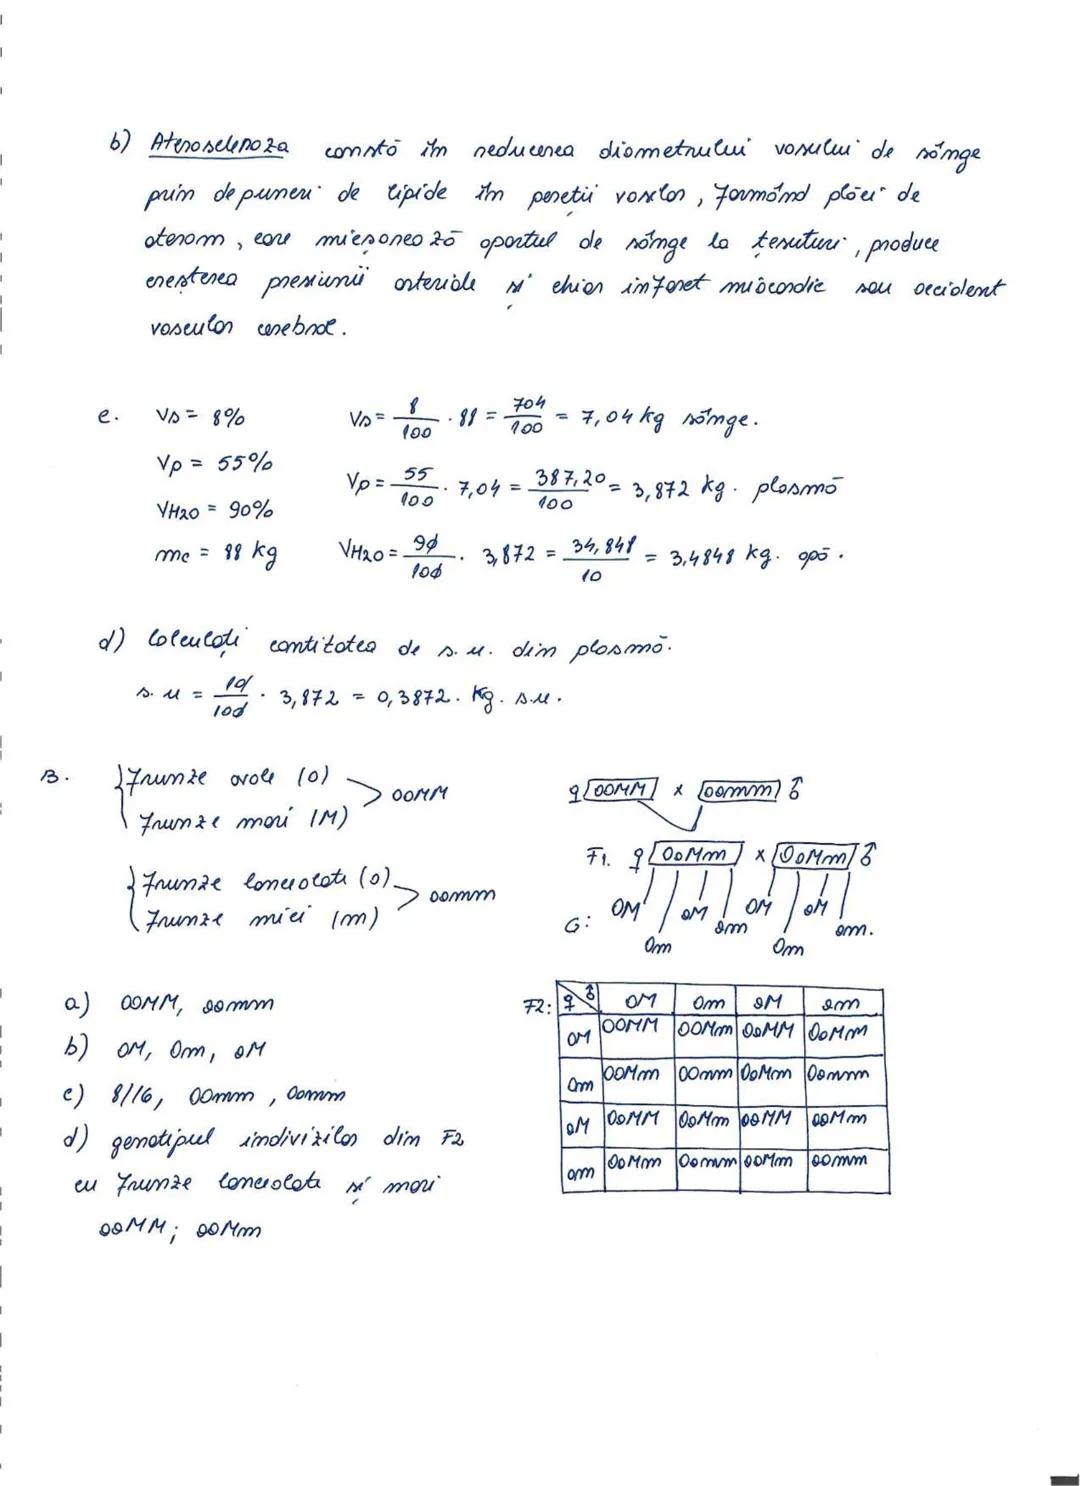 b) Ateroscleroza constă în reducerea diametrului vasului de sânge
prin depuneri de lipide în pereții vaselor, formând plăci de
aterom, care micșorează aportul de sânge la țesuturi, produce
creșterea presiunii arteriale și chiar infarct miocardic sau accident
vascular cerebral.
c. Vs = 8% Vs = 8/100 · 88 = 704/100 = 7,04 kg sânge.
Vp = 55% Vp = 55/100 · 7,04 = 387,20/100 = 3,872 kg. plasmă
VH2O = 90%
mc = 88 kg VH2O = 90/100 · 3,872 = 34,848/10 = 3,4848 kg. apă.
d) Calculați cantitatea de s.u. din plasmă.
s.u = 10/100 · 3,872 = 0,3872. Kg. s.u.
B. {Frunze ovale (O) > OOMM
Frunze mari (M)
{Frunze lanceolate (o) > oomm
Frunze mici (m)
♀ OOMM x oomm ♂
F1. ♀ OoMm x OoMm ♂
G: OM Om oM om OM Om oM om.
a) OOMM, oomm
b) OM, Om, oM
c) 8/16, OOmm, Oomm
d) genotipul indivizilor din F2
cu frunze lanceolate și mari
ooMM; ooMm
F2: ♀ ♂ OM Om oM om
OM OOMM OOMm OoMM OoMm
Om OOMm OOmm OoMm Oomm
oM OoMM OoMm ooMM ooMm
om OoMm Oomm ooMm oomm